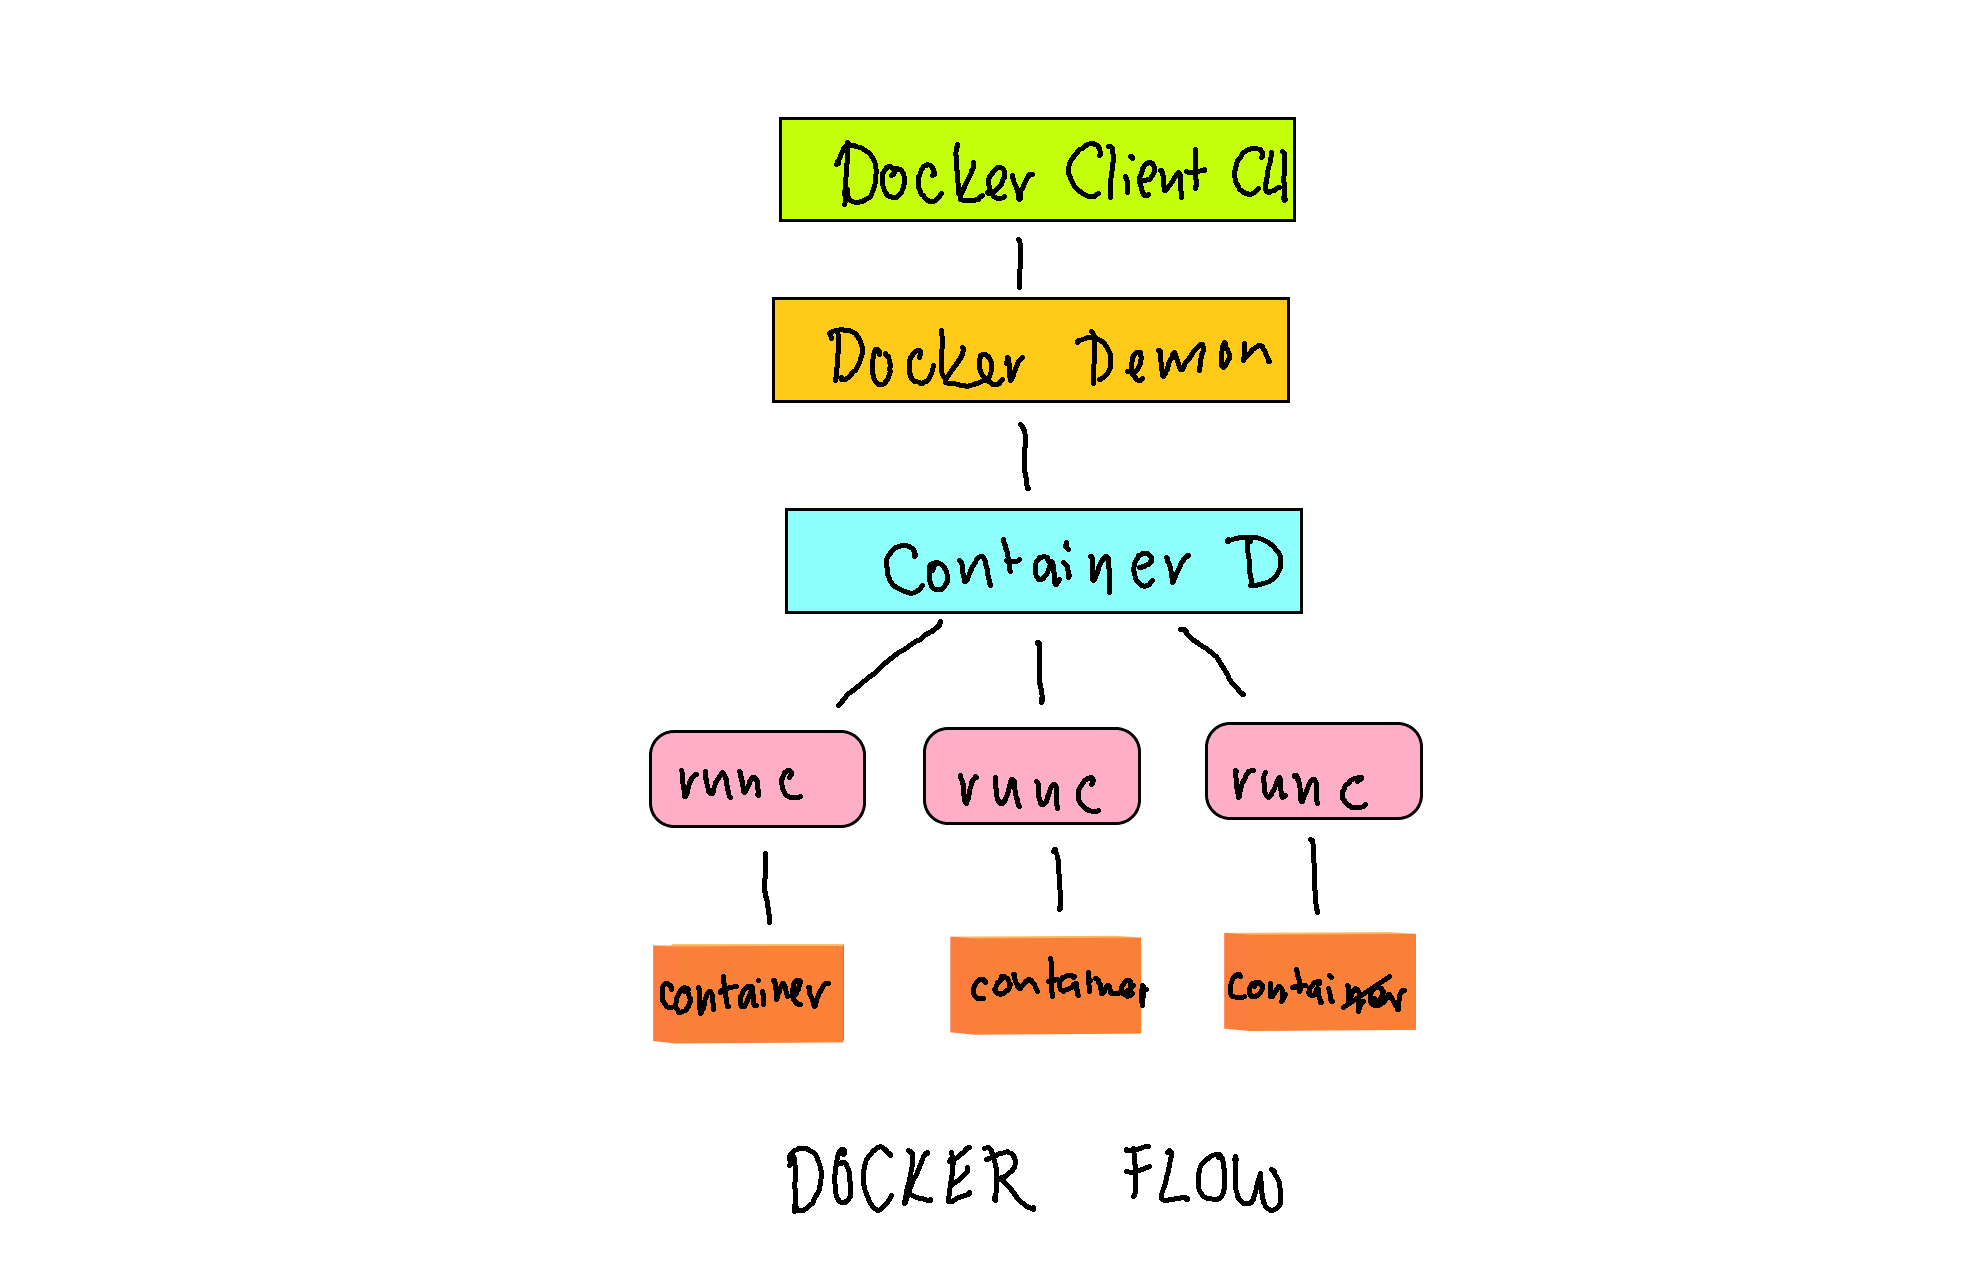 Docker Client CLI
Docker Demon
Container D
runc runc runc
container container container
DOCKER FLOW